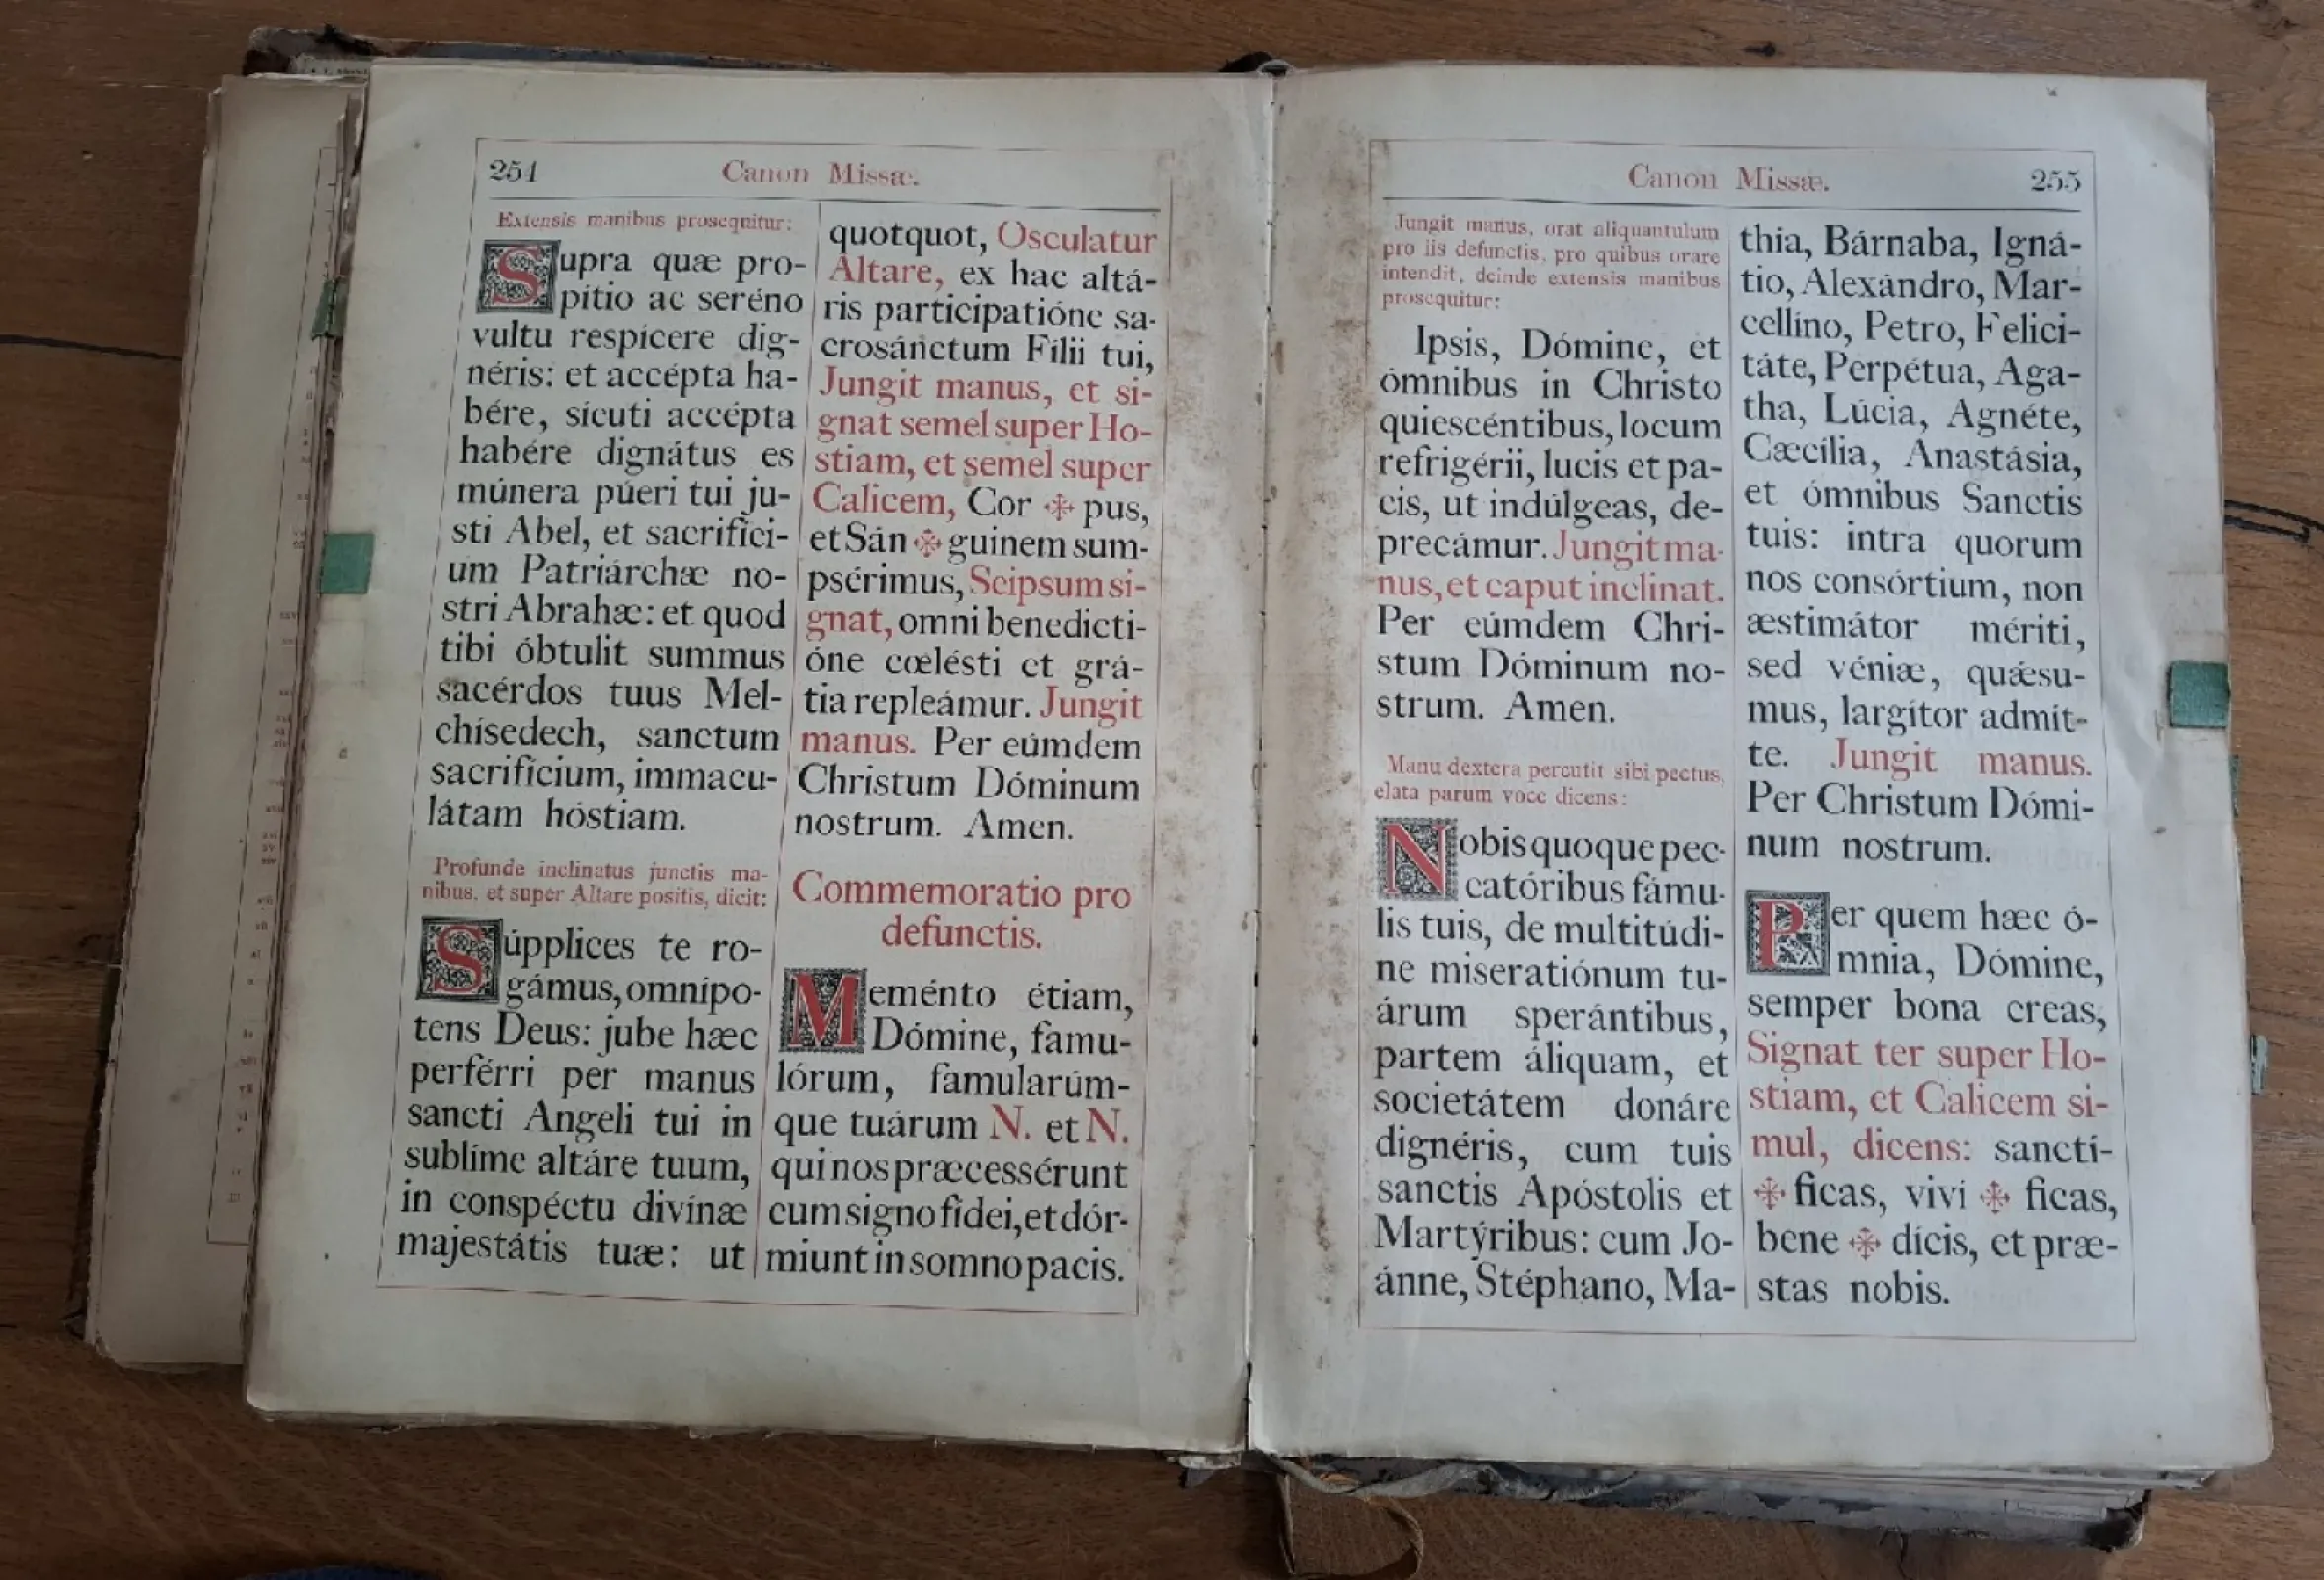 254
Canon Missæ.
Extensis manibus prosequitur:
Supra quæ pro-
pítio ac seréno
vultu respícere dig-
néris: et accépta ha-
bére, sícuti accépta
habére dignátus es
múnera púeri tui ju-
sti Abel, et sacrifíci-
um Patriárchæ no-
stri Abrahæ: et quod
tibi óbtulit summus
sacérdos tuus Mel-
chísedech, sanctum
sacrifícium, immacu-
látam hóstiam.
Profunde inclinatus junctis ma-
nibus, et super Altare positis, dicit:
Súpplices te ro-
gámus, omnípo-
tens Deus: jube hæc
perférri per manus
sancti Angeli tui in
sublíme altáre tuum,
in conspéctu divínæ
majestátis tuæ: ut
quotquot, Osculatur
Altare, ex hac altá-
ris participatióne sa-
crosánctum Fílii tui,
Jungit manus, et si-
gnat semel super Ho-
stiam, et semel super
Calicem, Cor ✠ pus,
et Sán ✠ guinem sum-
psérimus, Seipsum si-
gnat, omni benedicti-
óne cœlésti et grá-
tia repleámur. Jungit
manus. Per eúmdem
Christum Dóminum
nostrum. Amen.
Commemoratio pro
defunctis.
Meménto étiam,
Dómine, famu-
lórum, famularúm-
que tuárum N. et N.
qui nos præcessérunt
cum signo fídei, et dór-
miunt in somno pacis.
Canon Missæ.
255
Jungit manus, orat aliquantulum
pro iis defunctis, pro quibus orare
intendit, deinde extensis manibus
prosequitur:
Ipsis, Dómine, et
ómnibus in Christo
quiescéntibus, locum
refrigérii, lucis et pa-
cis, ut indúlgeas, de-
precámur. Jungit ma-
nus, et caput inclinat.
Per eúmdem Chri-
stum Dóminum no-
strum. Amen.
Manu dextera percutit sibi pectus,
elata parum voce dicens:
Nobis quoque pec-
catóribus fámu-
lis tuis, de multitúdi-
ne miseratiónum tu-
árum sperántibus,
partem áliquam, et
societátem donáre
dignéris, cum tuis
sanctis Apóstolis et
Martýribus: cum Jo-
ánne, Stéphano, Ma-
thía, Bárnaba, Igná-
tio, Alexándro, Mar-
cellíno, Petro, Felici-
táte, Perpétua, Aga-
tha, Lúcia, Agnéte,
Cæcília, Anastásia,
et ómnibus Sanctis
tuis: intra quorum
nos consórtium, non
æstimátor mériti,
sed véniæ, quǽsu-
mus, largítor admít-
te. Jungit manus.
Per Christum Dómi-
num nostrum.
Per quem hæc ó-
mnia, Dómine,
semper bona creas,
Signat ter super Ho-
stiam, et Calicem si-
mul, dicens: sanctí-
✠ ficas, viví ✠ ficas,
bene ✠ dícis, et præ-
stas nobis.